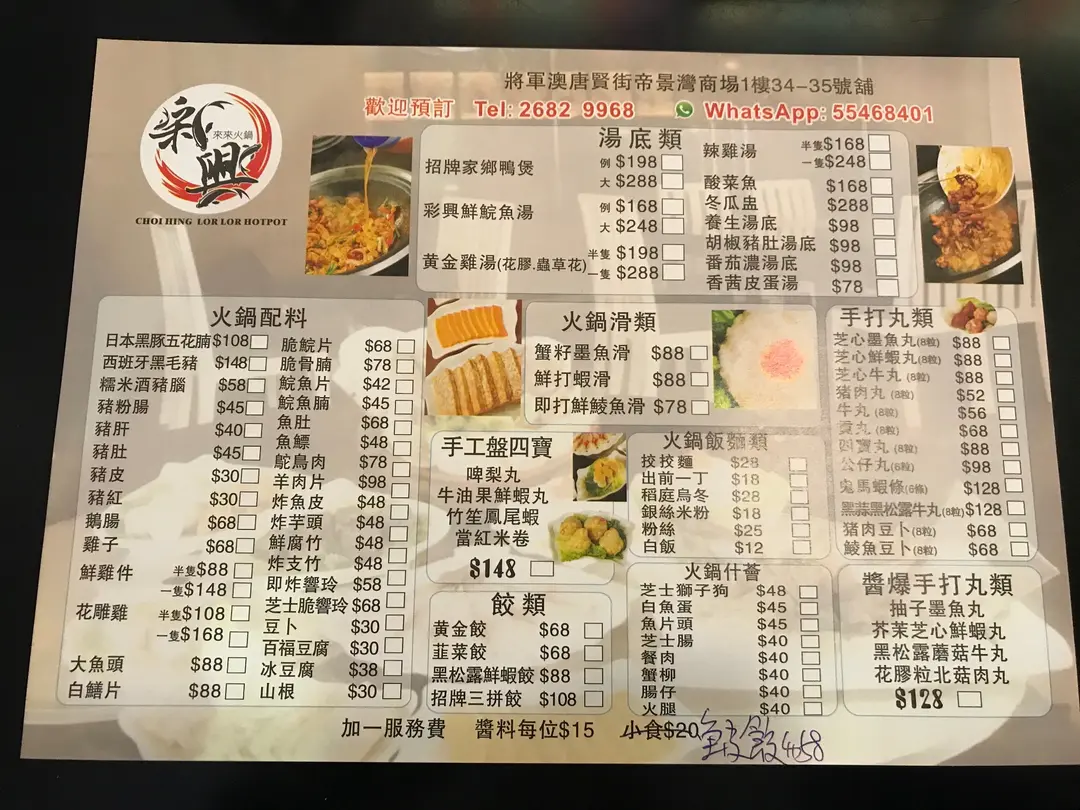 將軍澳唐賢街帝景灣商場1樓34-35號舖
歡迎預訂 Tel: 2682 9968 WhatsApp: 55468401
新興
來來火鍋
CHOI HING LOR LOR HOTPOT
湯底類
招牌家鄉鴨煲 例 $198
大 $288
彩興鮮鯇魚湯 例 $168
大 $248
黃金雞湯(花膠.蟲草花) 半隻 $198
一隻 $288
辣雞湯 半隻$168
一隻$248
酸菜魚 $168
冬瓜盅 $288
養生湯底 $98
胡椒豬肚湯底 $98
番茄濃湯底 $98
香茜皮蛋湯 $78
火鍋配料
日本黑豚五花腩$108
西班牙黑毛豬 $148
糯米酒豬腦 $58
豬粉腸 $45
豬肝 $40
豬肚 $45
豬皮 $30
豬紅 $30
鵝腸 $68
雞子 $68
鮮雞件 半隻$88
一隻$148
花雕雞 半隻$108
一隻$168
大魚頭 $88
白鱔片 $88
脆鯇片 $68
脆骨腩 $78
鯇魚片 $42
鯇魚腩 $45
魚肚 $68
魚鰾 $48
鴕鳥肉 $78
羊肉片 $98
炸魚皮 $48
炸芋頭 $48
鮮腐竹 $48
炸支竹 $48
即炸響玲 $58
芝士脆響玲 $68
豆卜 $30
百福豆腐 $30
冰豆腐 $38
山根 $30
火鍋滑類
蟹籽墨魚滑 $88
鮮打蝦滑 $88
即打鮮鯪魚滑 $78
手工盤四寶
啤梨丸
牛油果鮮蝦丸
竹笙鳳尾蝦
當紅米卷
$148
餃類
黃金餃 $68
韮菜餃 $68
黑松露鮮蝦餃 $88
招牌三拼餃 $108
火鍋飯麵類
挍挍麵 $28
出前一丁 $18
稻庭烏冬 $28
銀絲米粉 $18
粉絲 $25
白飯 $12
火鍋什薈
芝士獅子狗 $48
白魚蛋 $45
魚片頭 $45
芝士腸 $40
餐肉 $40
蟹柳 $40
腸仔 $40
火腿 $40
手打丸類
芝心墨魚丸(8粒) $88
芝心鮮蝦丸(8粒) $88
芝心牛丸 (8粒) $88
豬肉丸 (8粒) $52
牛丸 (8粒) $56
貢丸 (8粒) $68
四寶丸 (8粒) $88
公仔丸(6粒) $98
鬼馬蝦條(6條) $128
黑蒜黑松露牛丸(8粒)$128
豬肉豆卜(8粒) $68
鯪魚豆卜(8粒) $68
醬爆手打丸類
柚子墨魚丸
芥茉芝心鮮蝦丸
黑松露蘑菇牛丸
花膠粒北菇肉丸
$128
加一服務費 醬料每位$15 小食$20